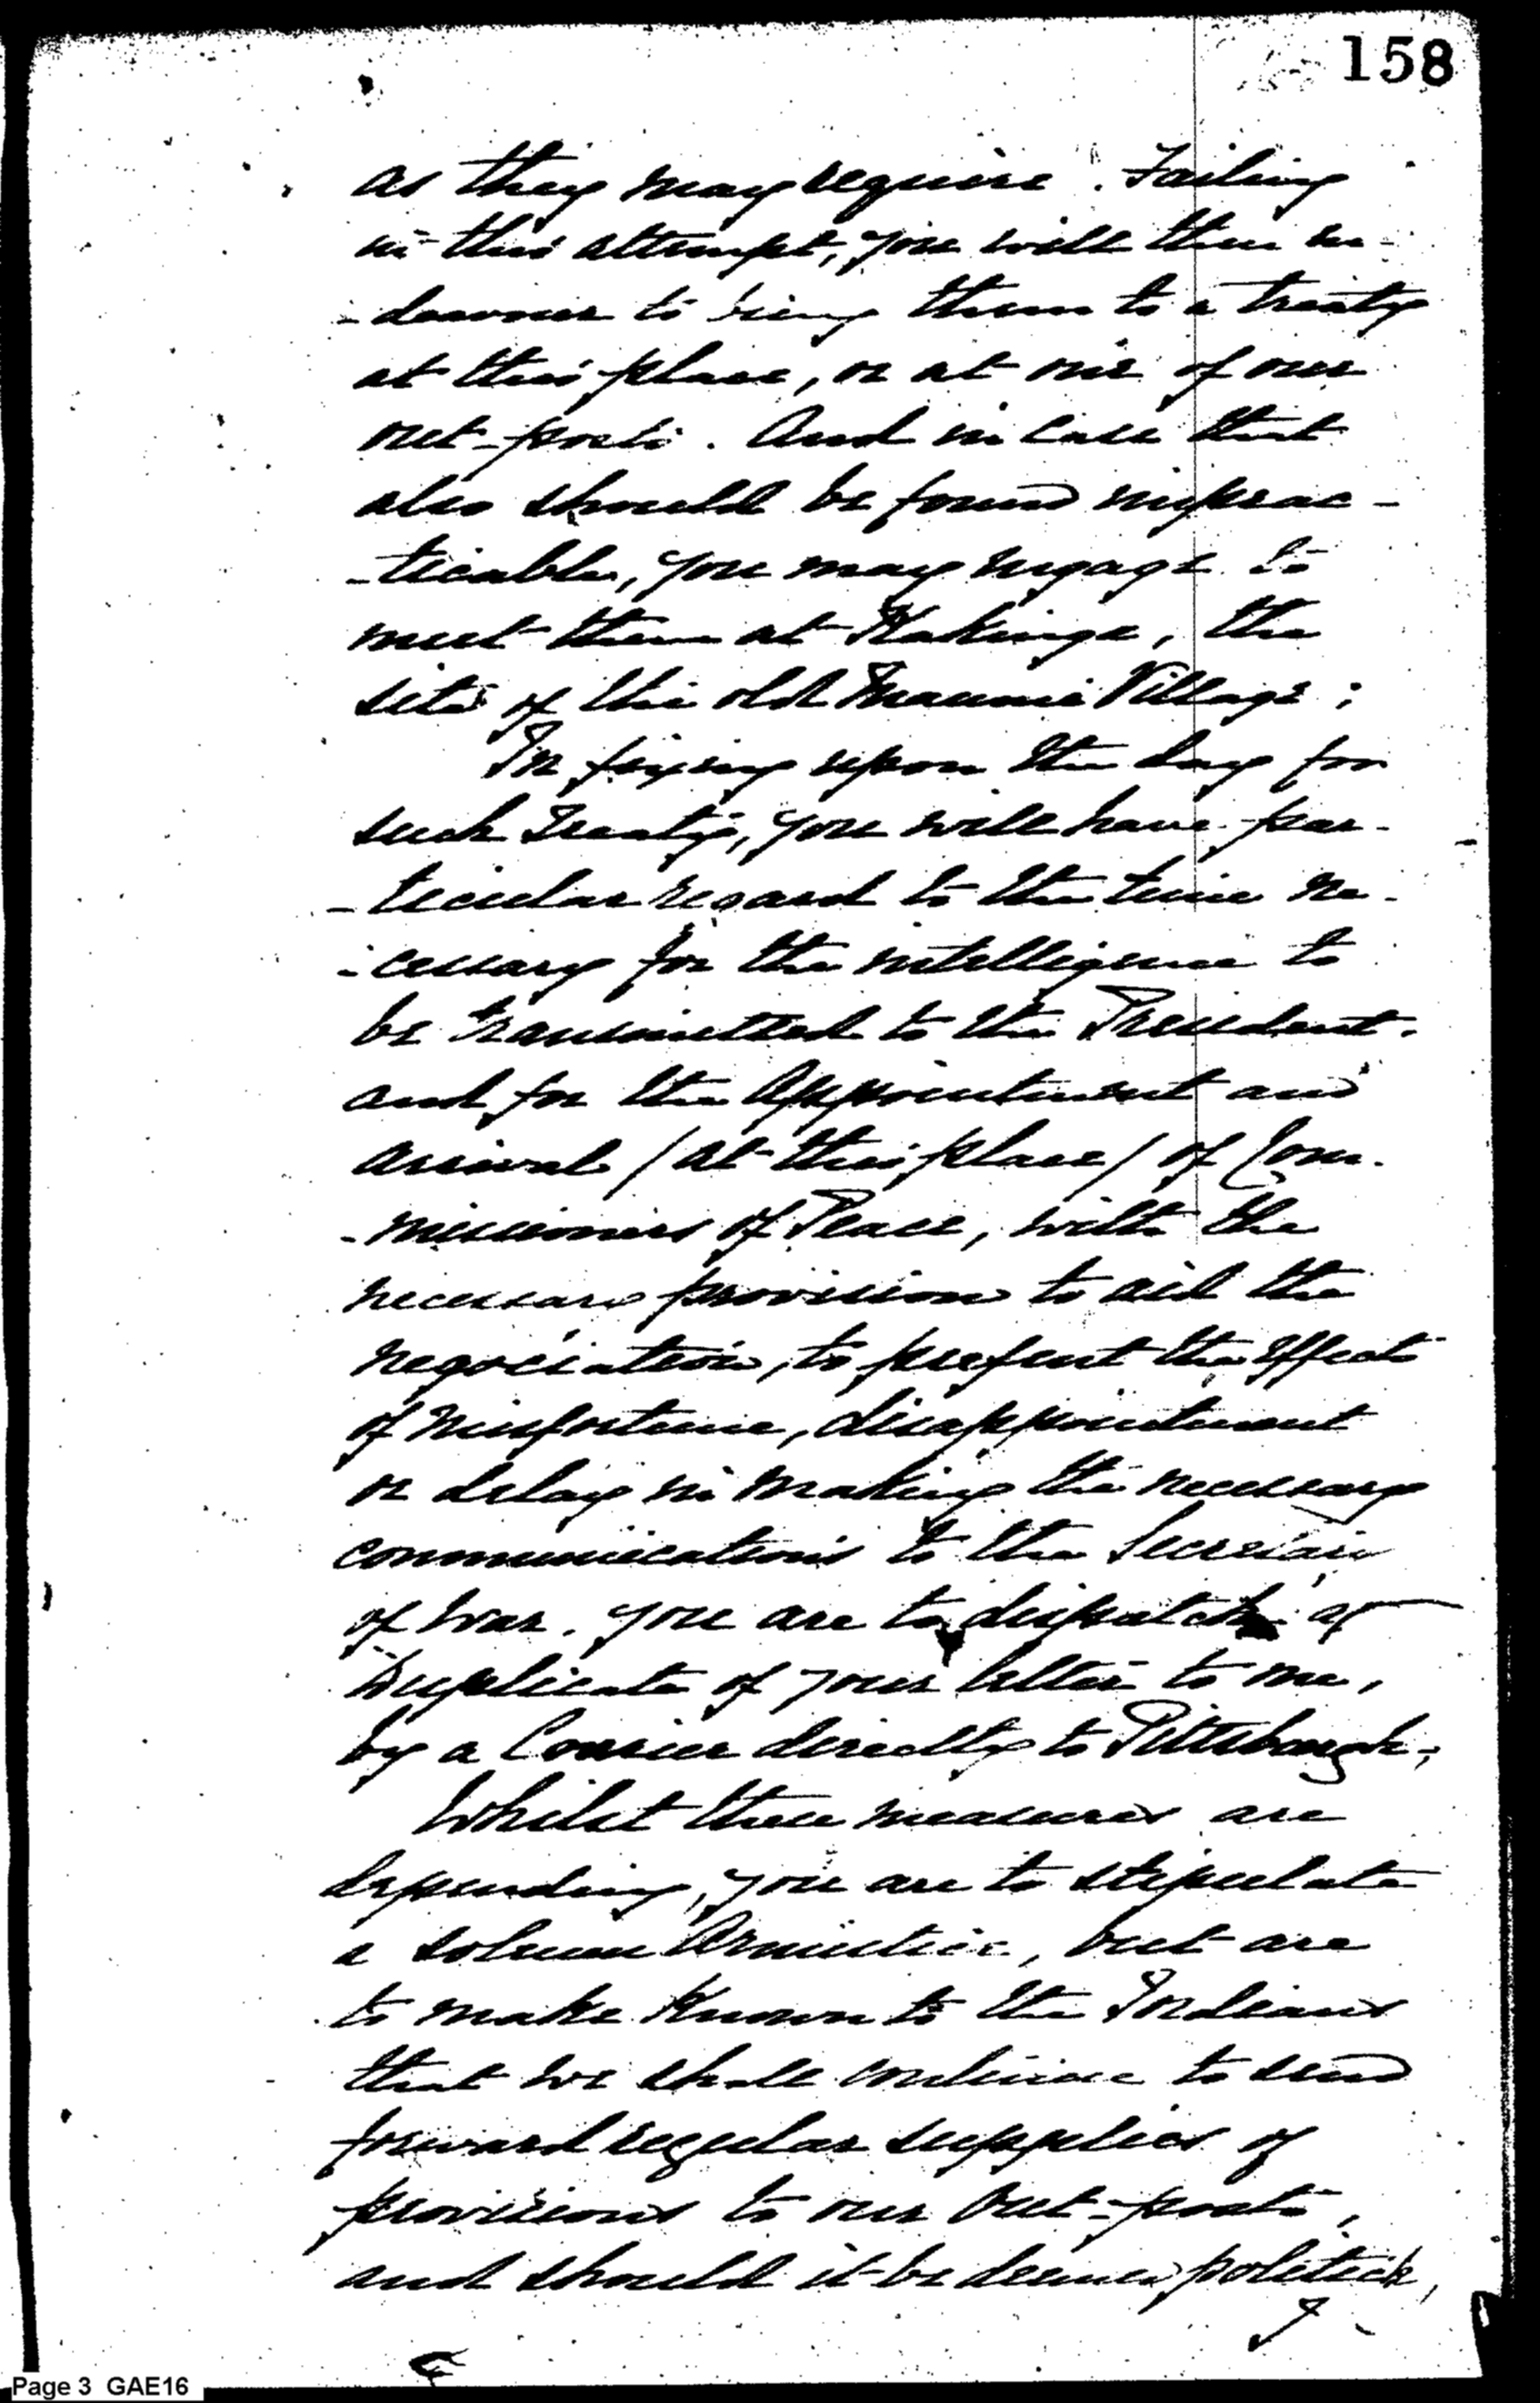 158
as they may require. Failing
in this attempt, you will then en-
-deavour to bring them to a treaty
at this place, or at one of our
out-posts. And in case that
also should be found imprac-
-ticable, you may engage to
meet them at Kekinga, the
site of the old Maumie Village;
In fixing upon the day for
such Treaty, you will have par-
-ticular regard to the time ne-
-cessary for the intelligence to
be transmitted to the President.
and for the Appointment and
arrival / at this place / of Com-
-missioners of Peace, with the
necessary provision to aid the
negociation, to prefent the effects
of misfortune, disappointment
or delay in making the necessary
communications to the Secretary
of War. you are to dispatch a
Duplicate of your letter to me,
by a Courier directly to Pittsburgh;
Whilst these measures are
depending, you are to stipulate
a solemn Armistice, but are
to make known to the Indians
that we shall continue to send
forward regular supplies of
provisions to our Out-posts,
and should it be deemed politick,
I
Page 3 GAE16